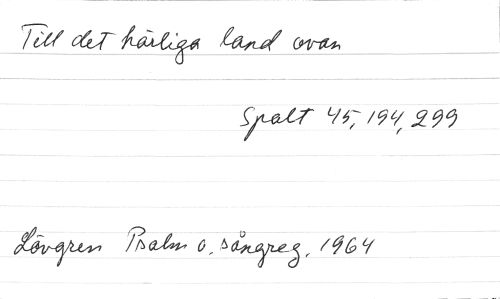 Till det härliga land ovan
Spalt 45, 194, 299
Lövgren Psalm o. sångreg. 1964